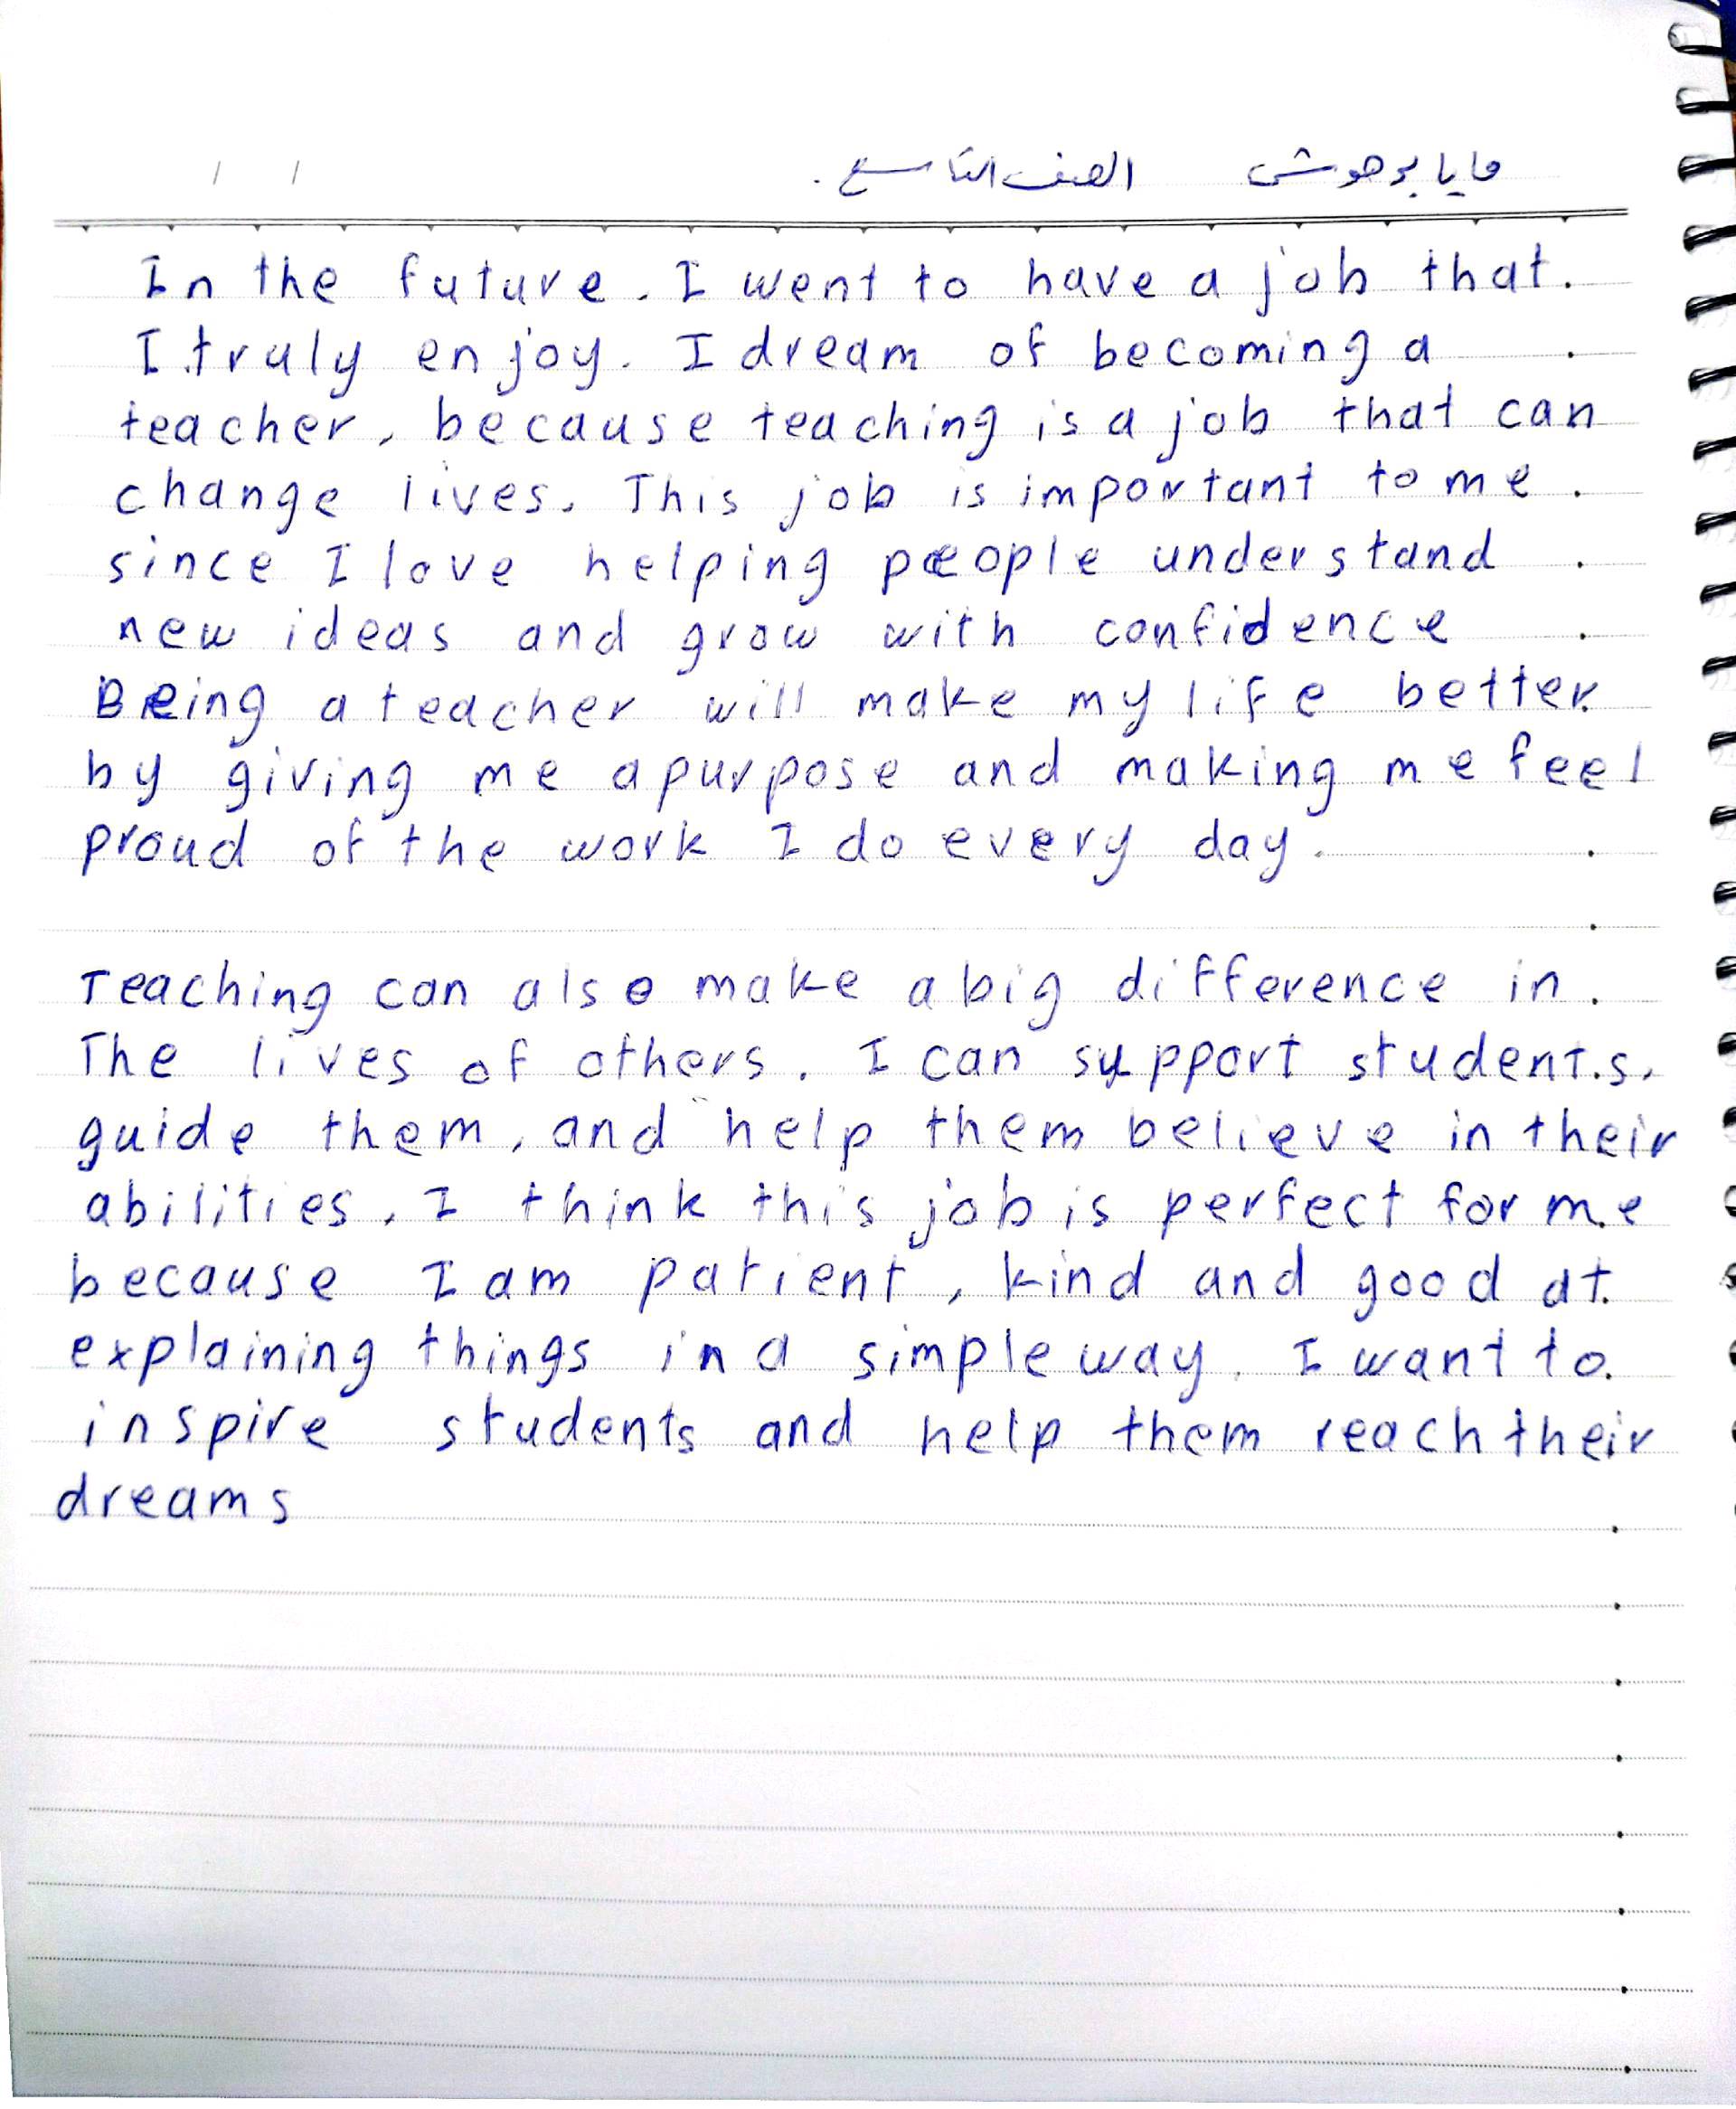 مايا برهوش الصف التاسع.
In the future. I went to have a job that
I truly enjoy. I dream of becoming a
teacher, because teaching is a job that can
change lives. This job is important to me
since I love helping people understand
new ideas and grow with confidence
Being a teacher will make my life better
by giving me a purpose and making me feel
proud of the work I do every day.
Teaching can also make a big difference in
The lives of others. I can support students,
guide them, and help them believe in their
abilities. I think this job is perfect for me
because I am patient, kind and good at
explaining things in a simple way. I want to
inspire students and help them reach their
dreams